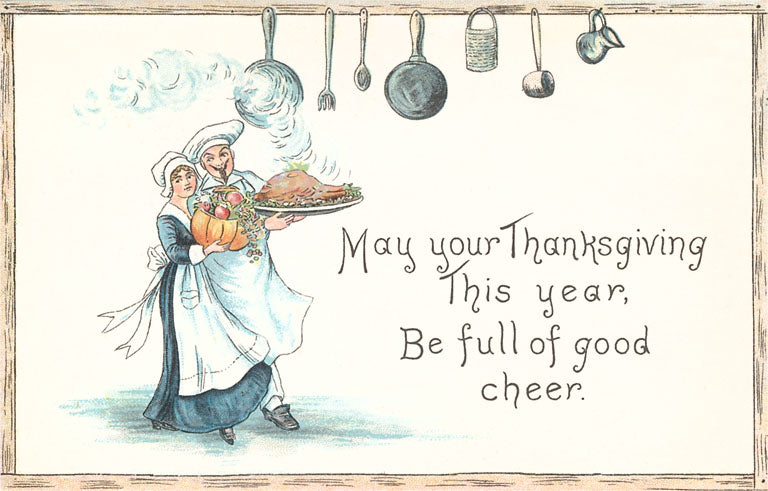 May your Thanksgiving
This year,
Be full of good
cheer.